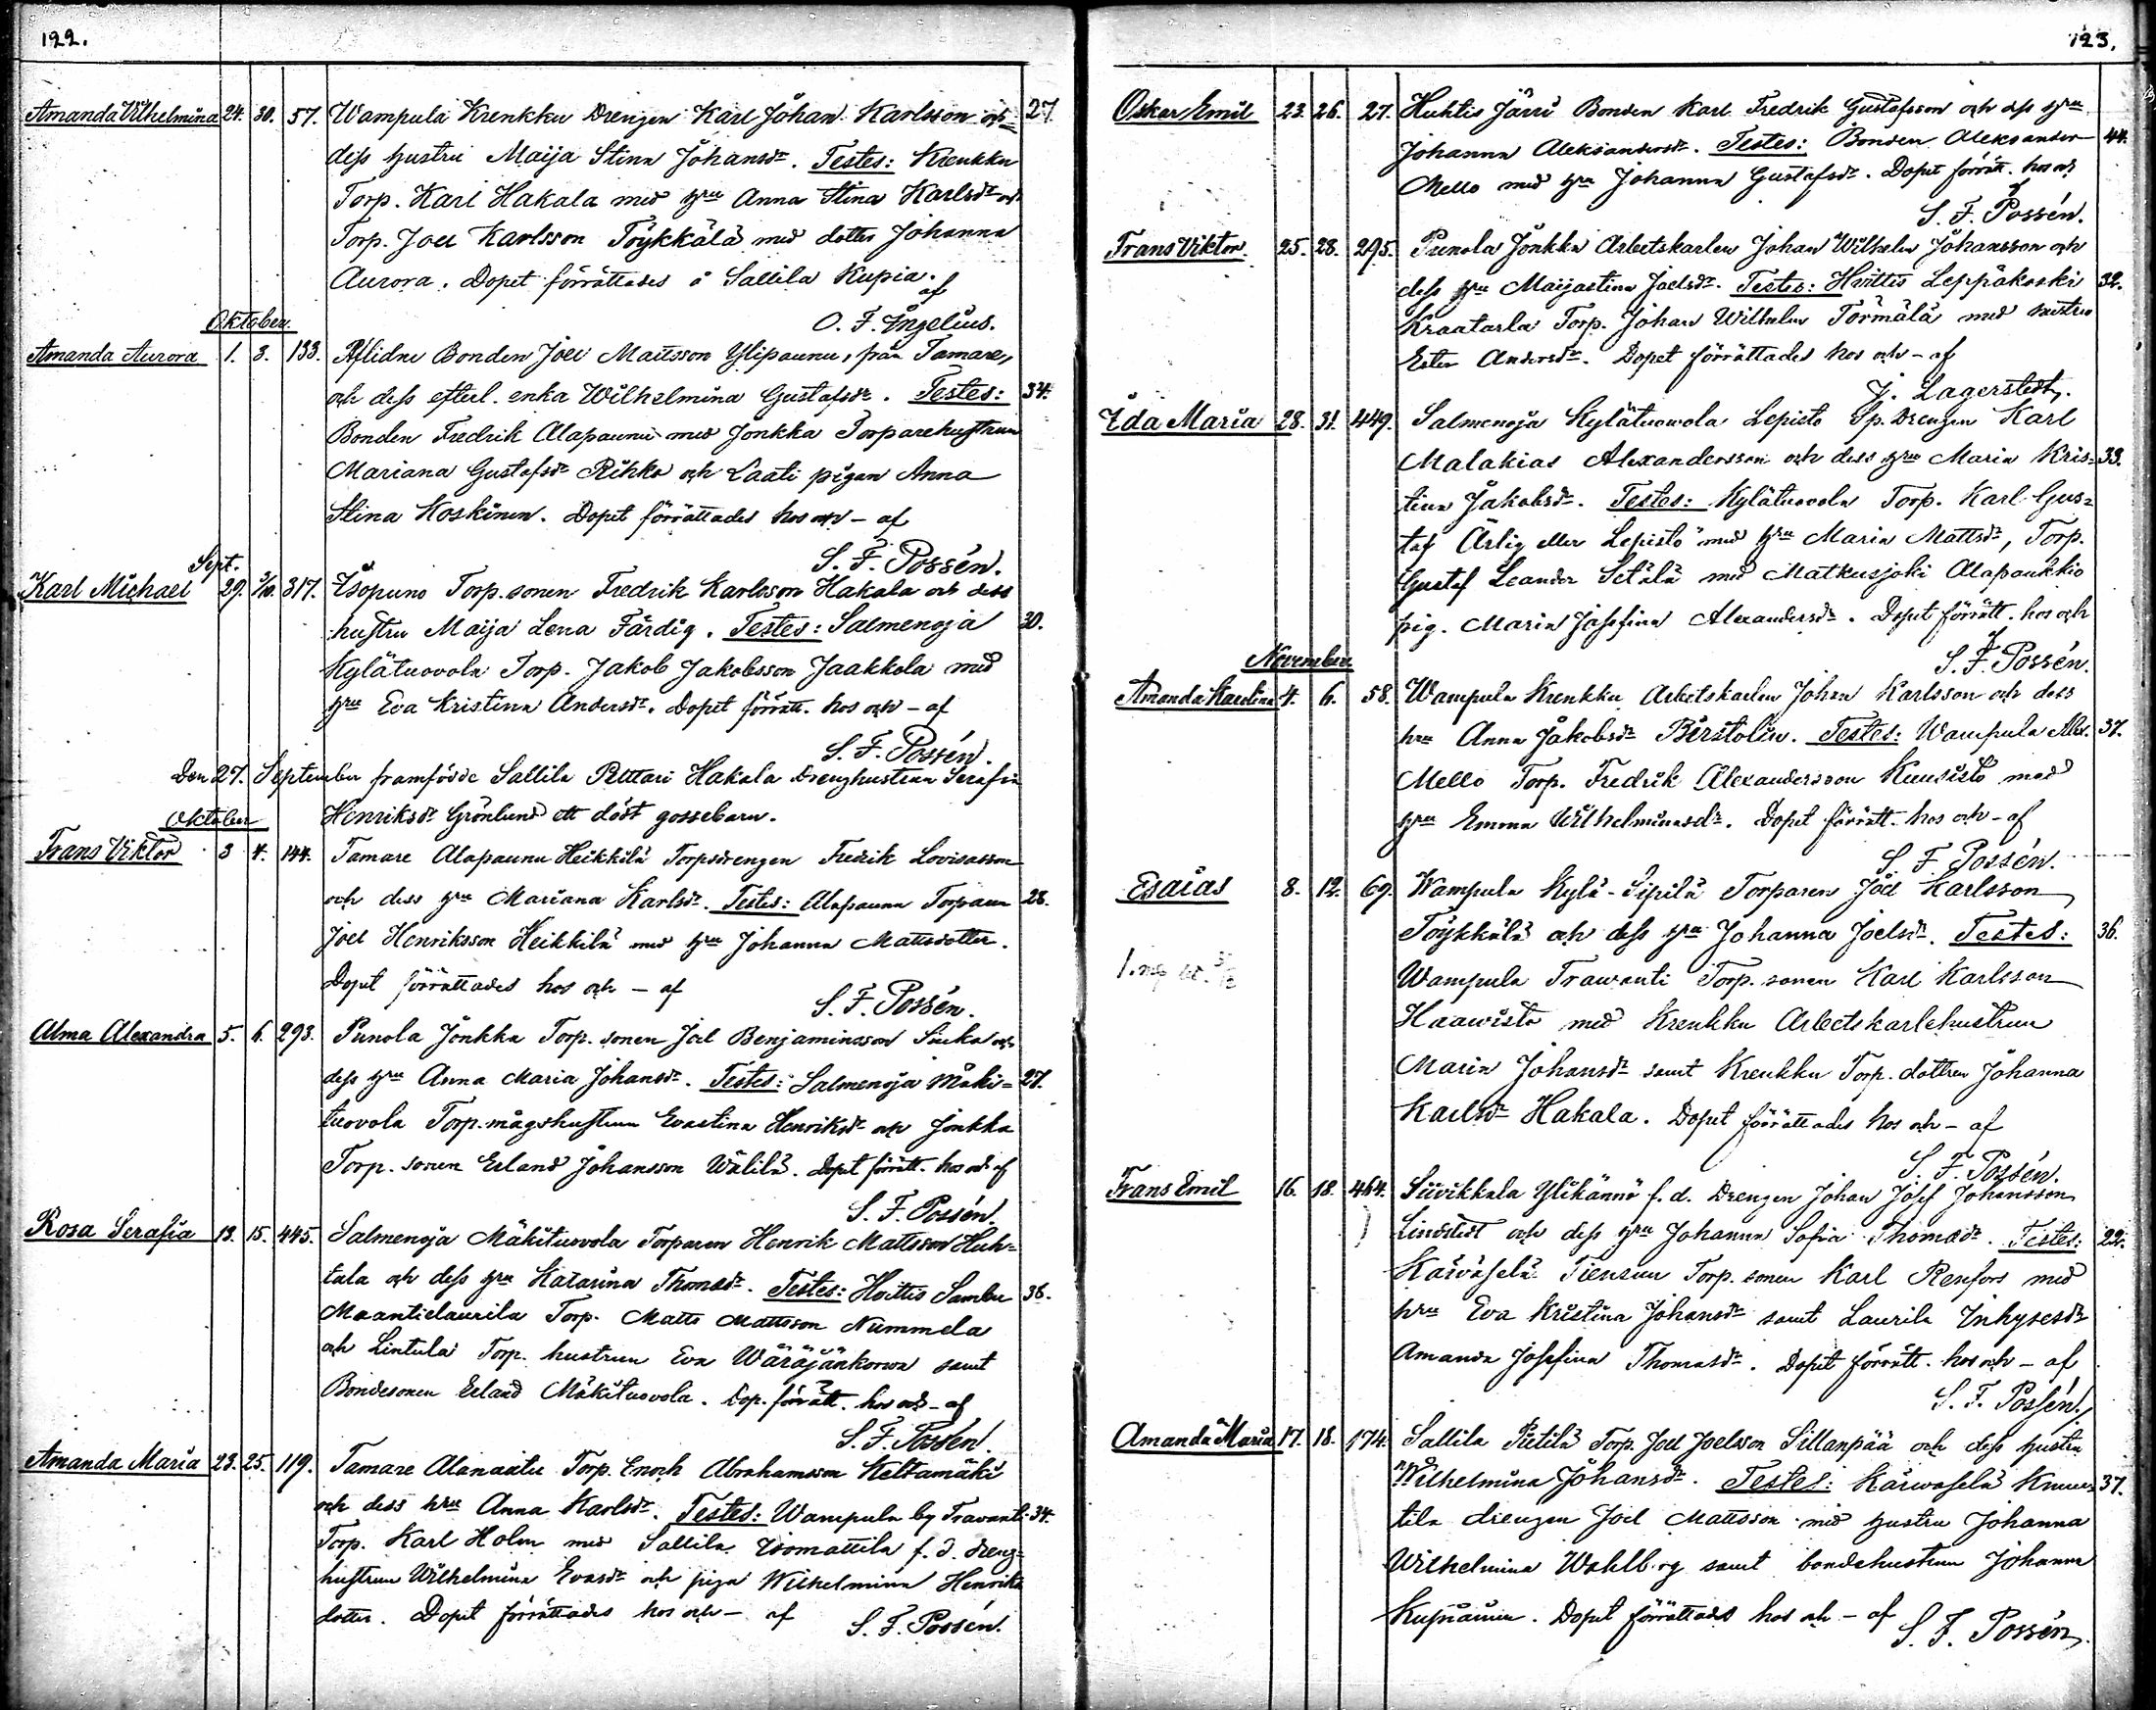 122.
Amanda Wilhelmina 24. 30. 57. Wampula Krenkku Drengen Karl Johan Karlsson och 27.
dess hustru Maija Stina Johansdr. Testes: Krenkku
Torp. Karl Hakala med hru Anna Stina Karlsdr och
Torp. Joel Karlsson Töykkälä med dotter Johanna
Aurora. Dopet förrättades å Sallila Kupia.
af
O. F. Ingelius.
Oktober.
Amanda Aurora 1. 3. 133. Aflidne Bonden Joel Mattsson Ylipaunu, från Tamare,
och dess efterl. enka Wilhelmina Gustafsdr. Testes: 34.
Bonden Fredrik Alapaunu med Jonkka Torparehustrun
Mariana Gustafsdr Rihko och Laati pigan Anna
Stina Koskinen. Dopet förrättades hos och – af
S. F. Possén.
Sept.
Karl Michael 29. 3/10. 317. Isopuno Torp. sonen Fredrik Karlsson Hakala och dess
hustru Maija Lena Färdig. Testes: Salmenoja 30.
Kylätuovola Torp. Jakob Jakobsson Jaakkola med
hru Eva Kristina Andersdr. Dopet förrätt. hos och – af
S. F. Possén.
Den 27. September framfödde Sallila Pettari Hakala Drenghustrun Serafia
Henriksdr Grönlund ett dödt gossebarn.
Oktober
Frans Viktor 3 4. 144. Tamare Alapaunu Heikkilä Torpdrengen Fredrik Lovisasson
och dess hru Mariana Karlsdr. Testes: Alapaunu Torparen 28.
Joel Henriksson Heikkilä med hru Johanna Mattsdotter.
Dopet förrättades hos och – af
S. F. Possén.
Alma Alexandra 5. 6. 293. Punola Jonkka Torp. sonen Joel Benjaminsson Sinko och
dess hru Anna Maria Johansdr. Testes: Salmenoja Mäki= 27.
tuovola Torp. mågshustrun Evastina Henriksdr och Jonkka
Torp. sonen Erland Johansson Wälilä. Dopet förrätt. hos och af
S. F. Possén.
Rosa Serafia 13. 15. 445. Salmenoja Mäkituovola Torparen Henrik Mattsson Huh=
tala och dess hru Katarina Thomasdr. Testes: Hvittis Sambu 36.
Maantielaurila Torp. Matts Mattsson Nummela
och Lintula Torp. hustrun Eva Wäräjänkorwa samt
Bondesonen Erland Mäkituovola. Dop. förrätt. hos och – af
S. F. Possén.
Amanda Maria 23. 25. 119. Tamare Alanaatu Torp. Enoch Abrahamsson Keltamäki
och dess hru Anna Karlsdr. Testes: Wampula by Travanti 34.
Torp. Karl Holm med Sallila f. d. dreng=
hustrun Wilhelmina Evasdr och piga Wilhelmina Henriks
dotter. Dopet förrättades hos och – af
S. F. Possén.
123.
Oskar Emil 23. 26. 27. Huhtis Järri Bonden Karl Fredrik Gustafsson och dess hru
Johanna Aleksandersdr. Testes: Bonden Aleksander 44.
Mello med hru Johanna Gustafsdr. Dopet förrätt. hos och
af
S. F. Possén.
Frans Viktor. 25. 28. 295. Punola Jonkka Arbetskarlen Johan Wilhelm Johansson och
dess hru Maijastina Joelsdr. Testes: Hvittis Leppäkoski 32.
Kraatarla Torp. Johan Wilhelm Törmälä med hustru
Ester Andersdr. Dopet förrättades hos och – af
J. Lagerstedt.
Ida Maria 28. 31. 449. Salmenoja Kylätuovola Lepistö Sp. drengen Karl
Malakias Alexandersson och dess hru Maria Kris= 33.
tina Jakobsdr. Testes: Kylätuovola Torp. Karl Gus=
taf Ärlig eller Lepistö med hru Maria Mattsdr, Torp.
Gustaf Leander Setälä med Matkusjoki Alapaukkio
pig. Maria Josefina Alexandersdr. Dopet förrätt. hos och
af
S. F. Possén.
November
Amanda Karolina 4. 6. 58. Wampula Krenkku Arbetskarlen Johan Karlsson och dess
hru Anna Jakobsdr Birstolin. Testes: Wampula Alex. 37.
Mello Torp. Fredrik Alexandersson Kuusisto med
hru Emma Wilhelminasdr. Dopet förrätt. hos och – af
S. F. Possén.
Esaias 8. 12. 69. Wampula Kylä-Sipilä Torparen Joel Karlsson
Töykkälä och dess hru Johanna Joelsdr. Testes: 36.
Wampula Trawanti Torp. sonen Karl Karlsson
Haawisto med Krenkku Arbetskarlehustrun
Maria Johansdr samt Krenkku Torp. dottren Johanna
Karlsdr Hakala. Dopet förrättades hos och – af
S. F. Possén.
Frans Emil 16. 18. 464. Suvikkala Ylikännö f. d. Drengen Johan Josef Johansson
Lindstedt och dess hru Johanna Sofia Thomasdr. Testes: 22.
Karwaselä Tiensuu Torp. sonen Karl Renfors med
hru Eva Kristina Johansdr samt Laurila Inhysesdr
Amanda Josefina Thomasdr. Dopet förrätt. hos och – af
S. F. Possén.
Amanda Maria 17. 18. 174. Sallila Pietilä Torp. Joel Joelsson Sillanpää och dess hustru
Wilhelmina Johansdr. Testes: Karwaselä Knuu= 37.
tila drengen Joel Mattsson med hustru Johanna
Wilhelmina Wahlberg samt bondehustrun Johanna
Dopet förrättades hos och – af
S. F. Possén.